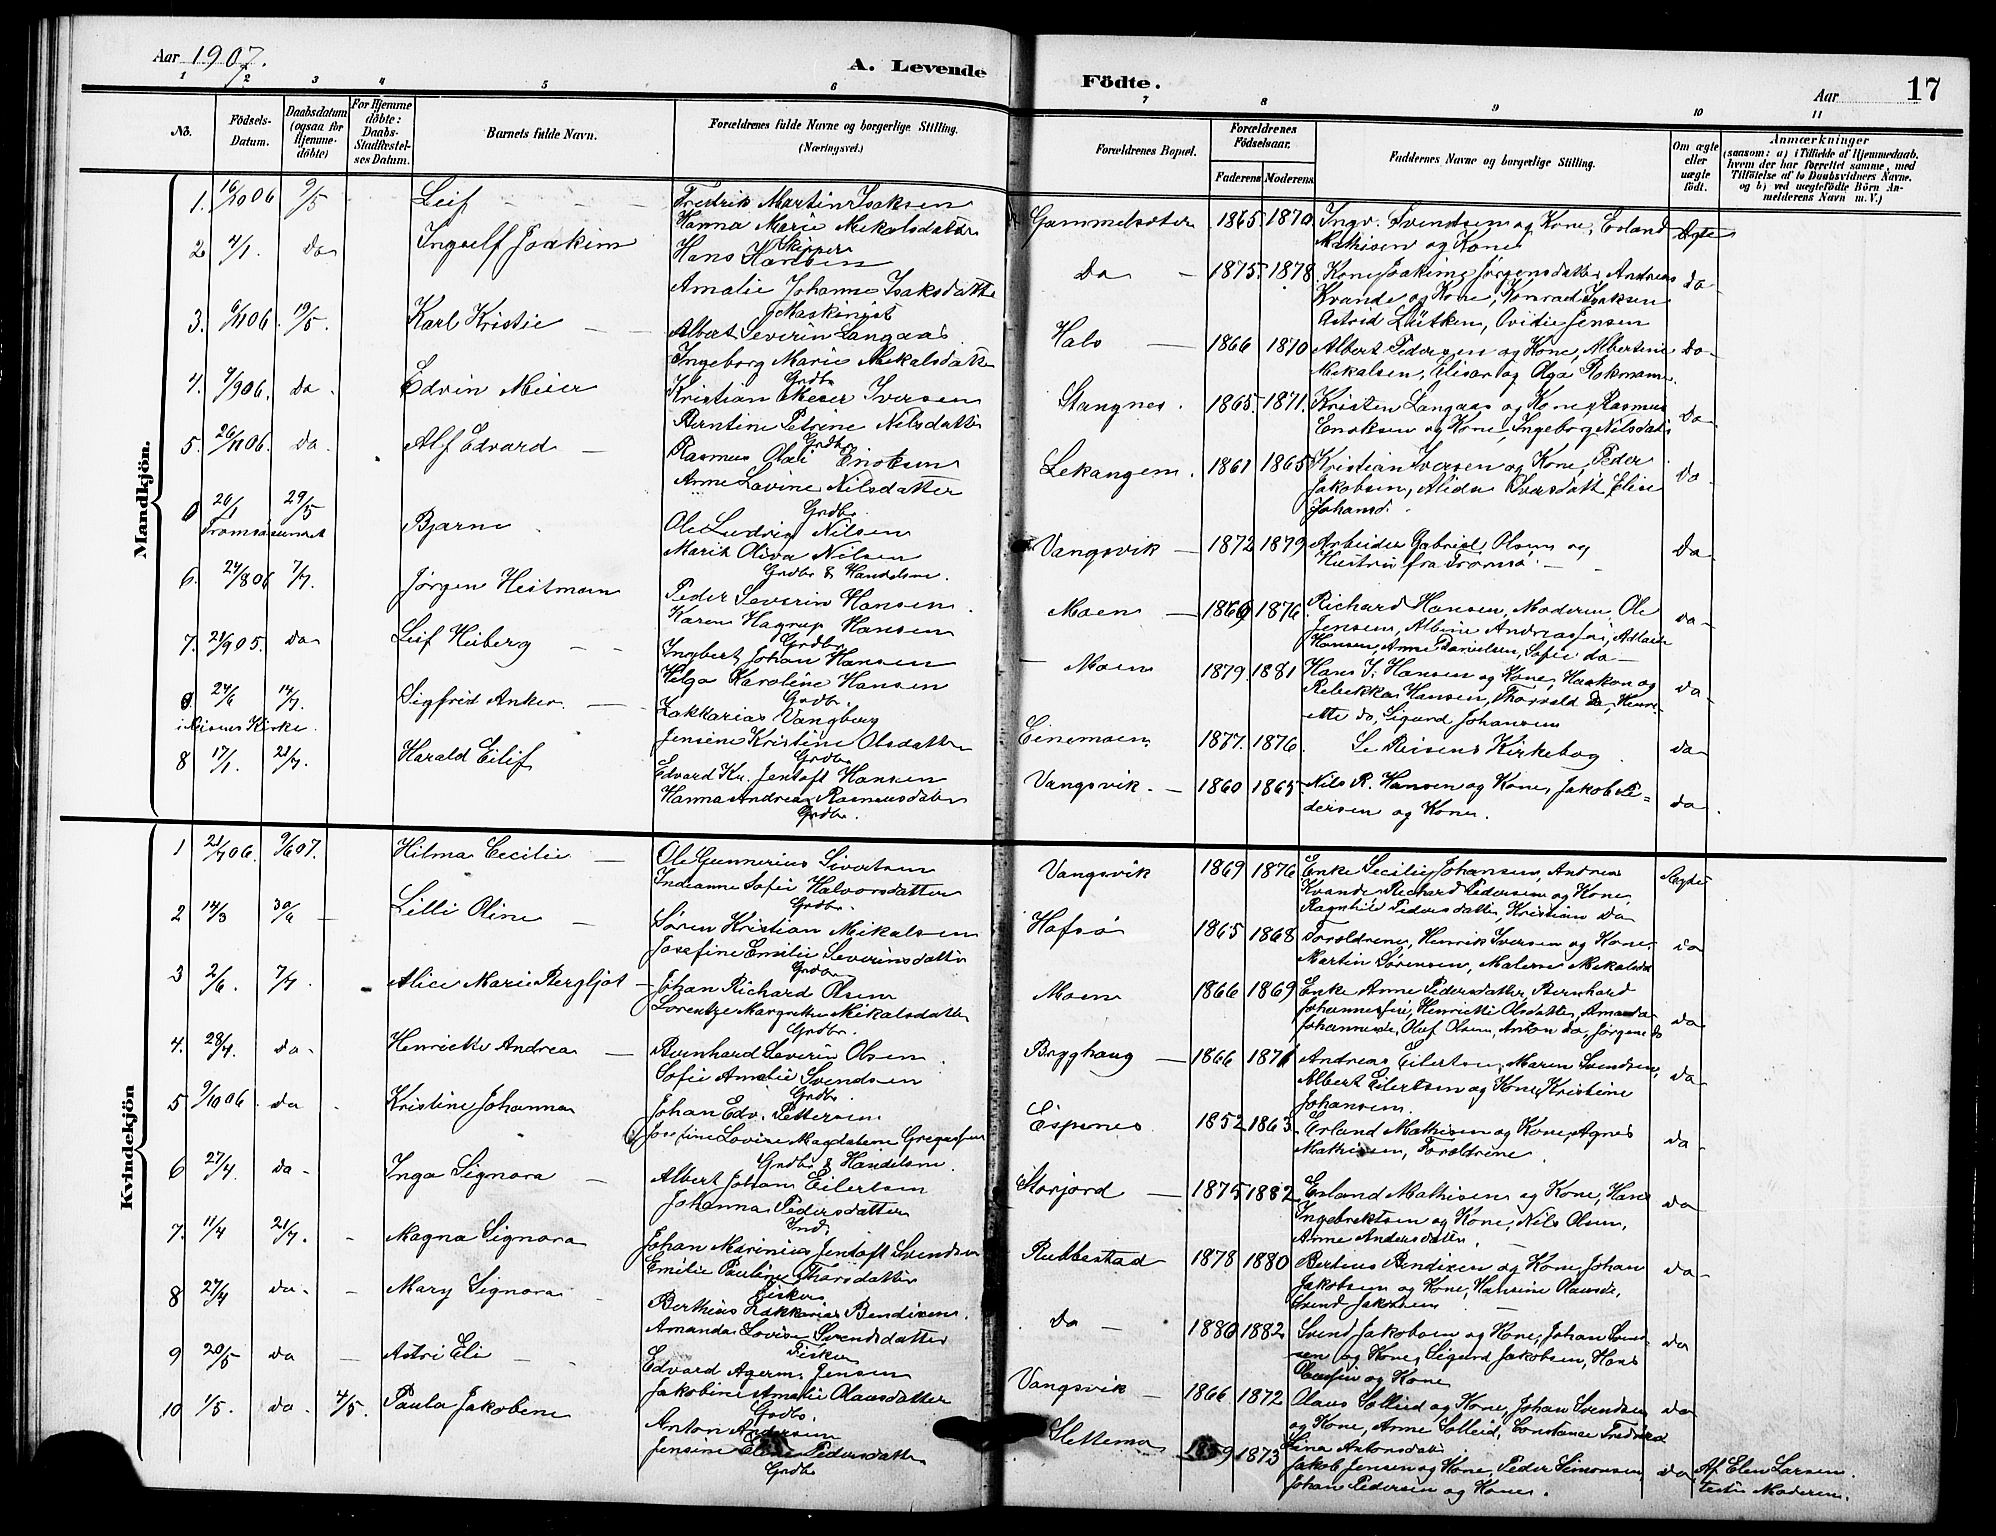 Aar 1907.
A. Levende Födte.
Aar 17
1 2 3 4 5 6 7 8 9 10 11
No.
Födsels-Datum.
Daabsdatum (ogsaa for Hjemmedöbte)
For Hjemmedöbte: Daabs-Stadfæstelses Datum.
Barnets fulde Navn.
Forældrenes fulde Navne og borgerlige Stilling.
(Næringsvei.)
Forældrenes Bopæl.
Forældrenes Födselsaar.
Faderens Moderens
Faddernes Navne og borgerlige Stilling.
Om ægte eller uægte födt.
Anmærkninger
(saasom: a) i Tilfælde af Hjemmedaab, hvem der har forrettet samme, med Tilföielse af to Daabsvidners Navne, og b) ved uægtefödte Börn Anmelderens Navn m. V.)
Mandkjön.
1. 16/10 06 9/5 Leif - Fredrik Martin Isaksen
Hanna Marie Mikalsdatter
Skipper
Gammelsæter 1865 1870 Ingv. Svendsen og Kone, Erland
Mathisen og Kone
Ægte
2 4/1. do Ingolf Joakim Hans Hansen
Amalie Johanne Isaksdatter
Maskinist
Do - 1875 1878 Kone Joakime Jørgensdatter, Andreas
Kvande og Kone, Konrad Isaksen
Astrid Lütken, Ovidie Jensen
do
3. 19/5. Karl Kristie - Albert Severin Langaas
Ingeborg Marie Mikalsdatter
Grdbr
Hals - 1866 1870 Albert Pedersen og Kone, Albertine
Mikalsen, Elisar og Olga
do
4. do. Edvin Meier Kristian Meier Iversen
Berntine Petrine Nilsdatter
Grdbr
Stangnes. 1865. 1871. Kristen Langaas og Kone, Rasmus
Enoksen og Kone, Ingeborg Nilsdatter
do
5. 26/11 06. do. Alf Edvard - Rasmus Olai Enoksen
Anne Lovine Nilsdatter
Grdbr.
Lekangen. 1861 1865 Kristian Iversen og Kone, Peder
Jakobsen, Alida Iversdatt, Elise
Johansd.
do
26/1 29/5 Bjarne Ole Ludvig Nilsen
Tromsøsundet
Marit Oliva Nilsen
Grdbr & Handelsm.
Vangsvik - 1872 1879 Arbeider Gabriel Olsen og
Hustru fra Tromsø. -
do
6. 24/8 06 7/7. Jørgen Heitmann Peder Severin Hansen.
Karen Hagrup Hansen
Grdbr
Moen - 1869 1876 Richard Hansen, Moderen, Ole
Jensen, Albine Andreassen,
Hansen, Anne Danielsen, Sofie do -
do
7. 21/9 05. do Leif Heiberg - - Ingebert Johan Hansen
Helga Karoline Hansen
Grdbr.
Moen 1879 1881 Hans J. Hansen og Kone, Haakon og
Rebekka Hansen, Thorvald do, Henri-
ette do, Sigurd Johansen
do
24/6 14/7. Sigfred Anker. - Zakkarias Vangberg
i Kirke.
Jensine Kristine Olsdatter
Grdbr
Einemoen 1877. 1876. Se Reisens Kirkebog do
8 17/1. 21/7. Harald Eilif Edvard Kr. Jentoft Hansen
Hanna Andrea Rasmusdatter
Grdbr.
Vangsvik. - 1860 1865 Nils R. Hansen og Kone, Jakob Pe-
dersen og Kone.
do
Kvindekjön
1 21/7 06. 9/6 07. Hilma Cecilie - Ole Gunnerius Sivertsen
Indianne Sofie Halvorsdatter
Grdbr.
Vangsvik 1869 1876 Enke Cecilie Johansen, Andreas
Kvande, Richard Pedersen og Kone,
Ragnhild Pedersdatter, Kristian do
Ægte
2 14/3 30/6 - Lilli Oline - Søren Kristian Mikalsen
Josefine Emilie Severinsdatter
Grdbr
Hofsø 1865 1868 Forældrene, Henrik Iversen og Kone,
Martin Sørensen, Malene Mikalsda
do
3 2/6. 7/7. Alice Marie Bergljot - Johan Richard Olsen
Lorentze Margrethe Mikalsdatter
Grdbr.
Moen 1866 1869 Enke Anne Pedersdatter, Bernhard
Henriette Olsdatter, Amanda
Johannesd, Oluf Olsen, Anton do, Jørgine do
do
4. 28/4. do. Henrikke Andrea - Bernhard Severin Olsen.
Sofie Amalie Svendsen
Grdbr.
Brygghaug - 1866 1871 Andreas Eilertsen, Maren Svendsen,
Albert Eilertsen og Kone, Kristine
Johansen.
do
5 9/10 06. do Kristine Johanna Johan Edv. Pettersen
Josefine Lovine Magdalene
Grdbr & Handelsm.
Espenes 1852 1863 Erland Mathisen og Kone, Agnes
Mathisen, Forældrene.
do
6 27/4. do - Inga Signora - Albert Johan Eilertsen
Johanna Pedersdatter
Ind.
Storjord - 1875 1882 Erland Mathisen og Kone, Hans
Ingebrektsen og Kone, Nils Olsen,
Arne Andersdatter.
do
7. 11/4 21/7. - Magna Signora Johan Marinius Jentoft Svendsen
Emilie Pauline Thorsdatter
Fisker
Rubbestad 1878 1880 Bertius Bendixen og Kone, Johan
Jakobsen og Kone, Hansine
Svend Jakobsen
do
8 27/4 do. - Mary Signora - Berthius Zakkarias Bendixen.
Amanda Lovise Svendsdatter
Fisker
do - 1880 1882 Svend Jakobsen og Kone, Johan Svend-
sen og Kone, Sigurd Jakobsen, Hans
og Kone
do
9 20/5 do - Astri Eli - Edvard Agerm. Jensen
Jakobine Amalie Olausdatter
Grdbr.
Vangsvik - 1866 1872 Olaus Solleid og Kone, Johan Svendsen
og Kone, Anne Solleid, Constance
Lina Antonsdatt
do
10 1/5. do. 4/5. Paula Jakobine Anton Andersen
Jensine Pedersdatter
Grdbr
Slettemo 1859 1873 Jakob Jensen og Kone, Peder Simonsen,
Johan Pedersen og Kone.
do
Af Elen Larsen.
testis Moderen.